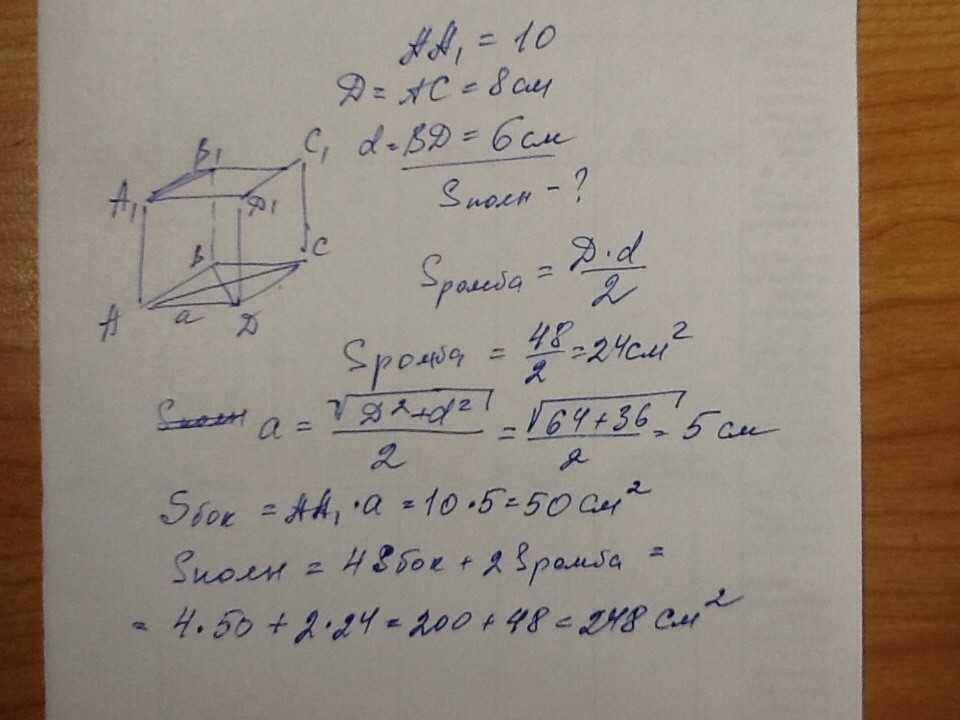 AA₁ = 10
D = AC = 8 см
d = BD = 6 см
Sполн - ?
B₁
C₁
A₁
D₁
B
C
A
a
D
Sромба = D·d/2
Sромба = 48/2 = 24 см²
Sполн a = √(D²+d²)/2 = √(64+36)/2 = 5 см
Sбок = AA₁·a = 10·5 = 50 см²
Sполн = 4Sбок + 2Sромба =
= 4·50 + 2·24 = 200 + 48 = 248 см²